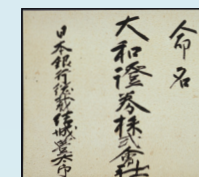 命名
大和證券株式會社
日本銀行総裁結城豊太郎